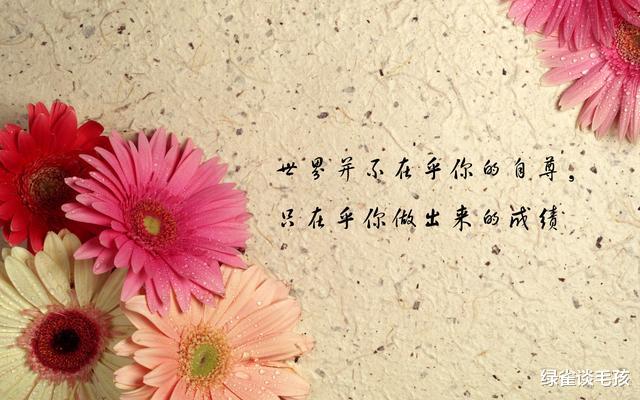 世界并不在乎你的自尊，
只在乎你做出来的成绩
绿雀谈毛孩